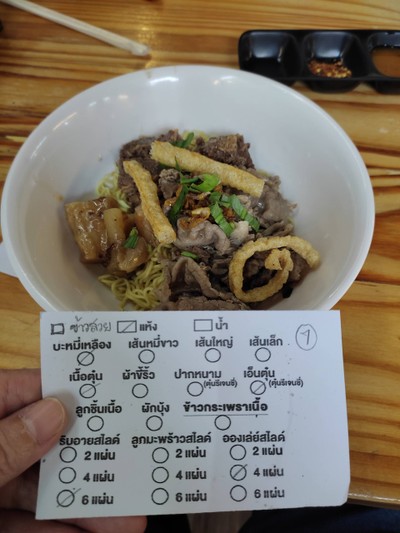 ข้าวสวย แห้ง น้ำ
บะหมี่เหลือง เส้นหมี่ขาว เส้นใหญ่ เส้นเล็ก
เนื้อตุ๋น ผ้าขี้ริ้ว ปากหนาม (ตุ๋นรีเจนซี่) เอ็นตุ๋น (ตุ๋นรีเจนซี่)
ลูกชิ้นเนื้อ ผักบุ้ง ข้าวกระเพราเนื้อ
ริบอายสไลด์ ลูกมะพร้าวสไลด์ อองเล่ย์สไลด์
2 แผ่น 2 แผ่น 2 แผ่น
4 แผ่น 4 แผ่น 4 แผ่น
6 แผ่น 6 แผ่น 6 แผ่น